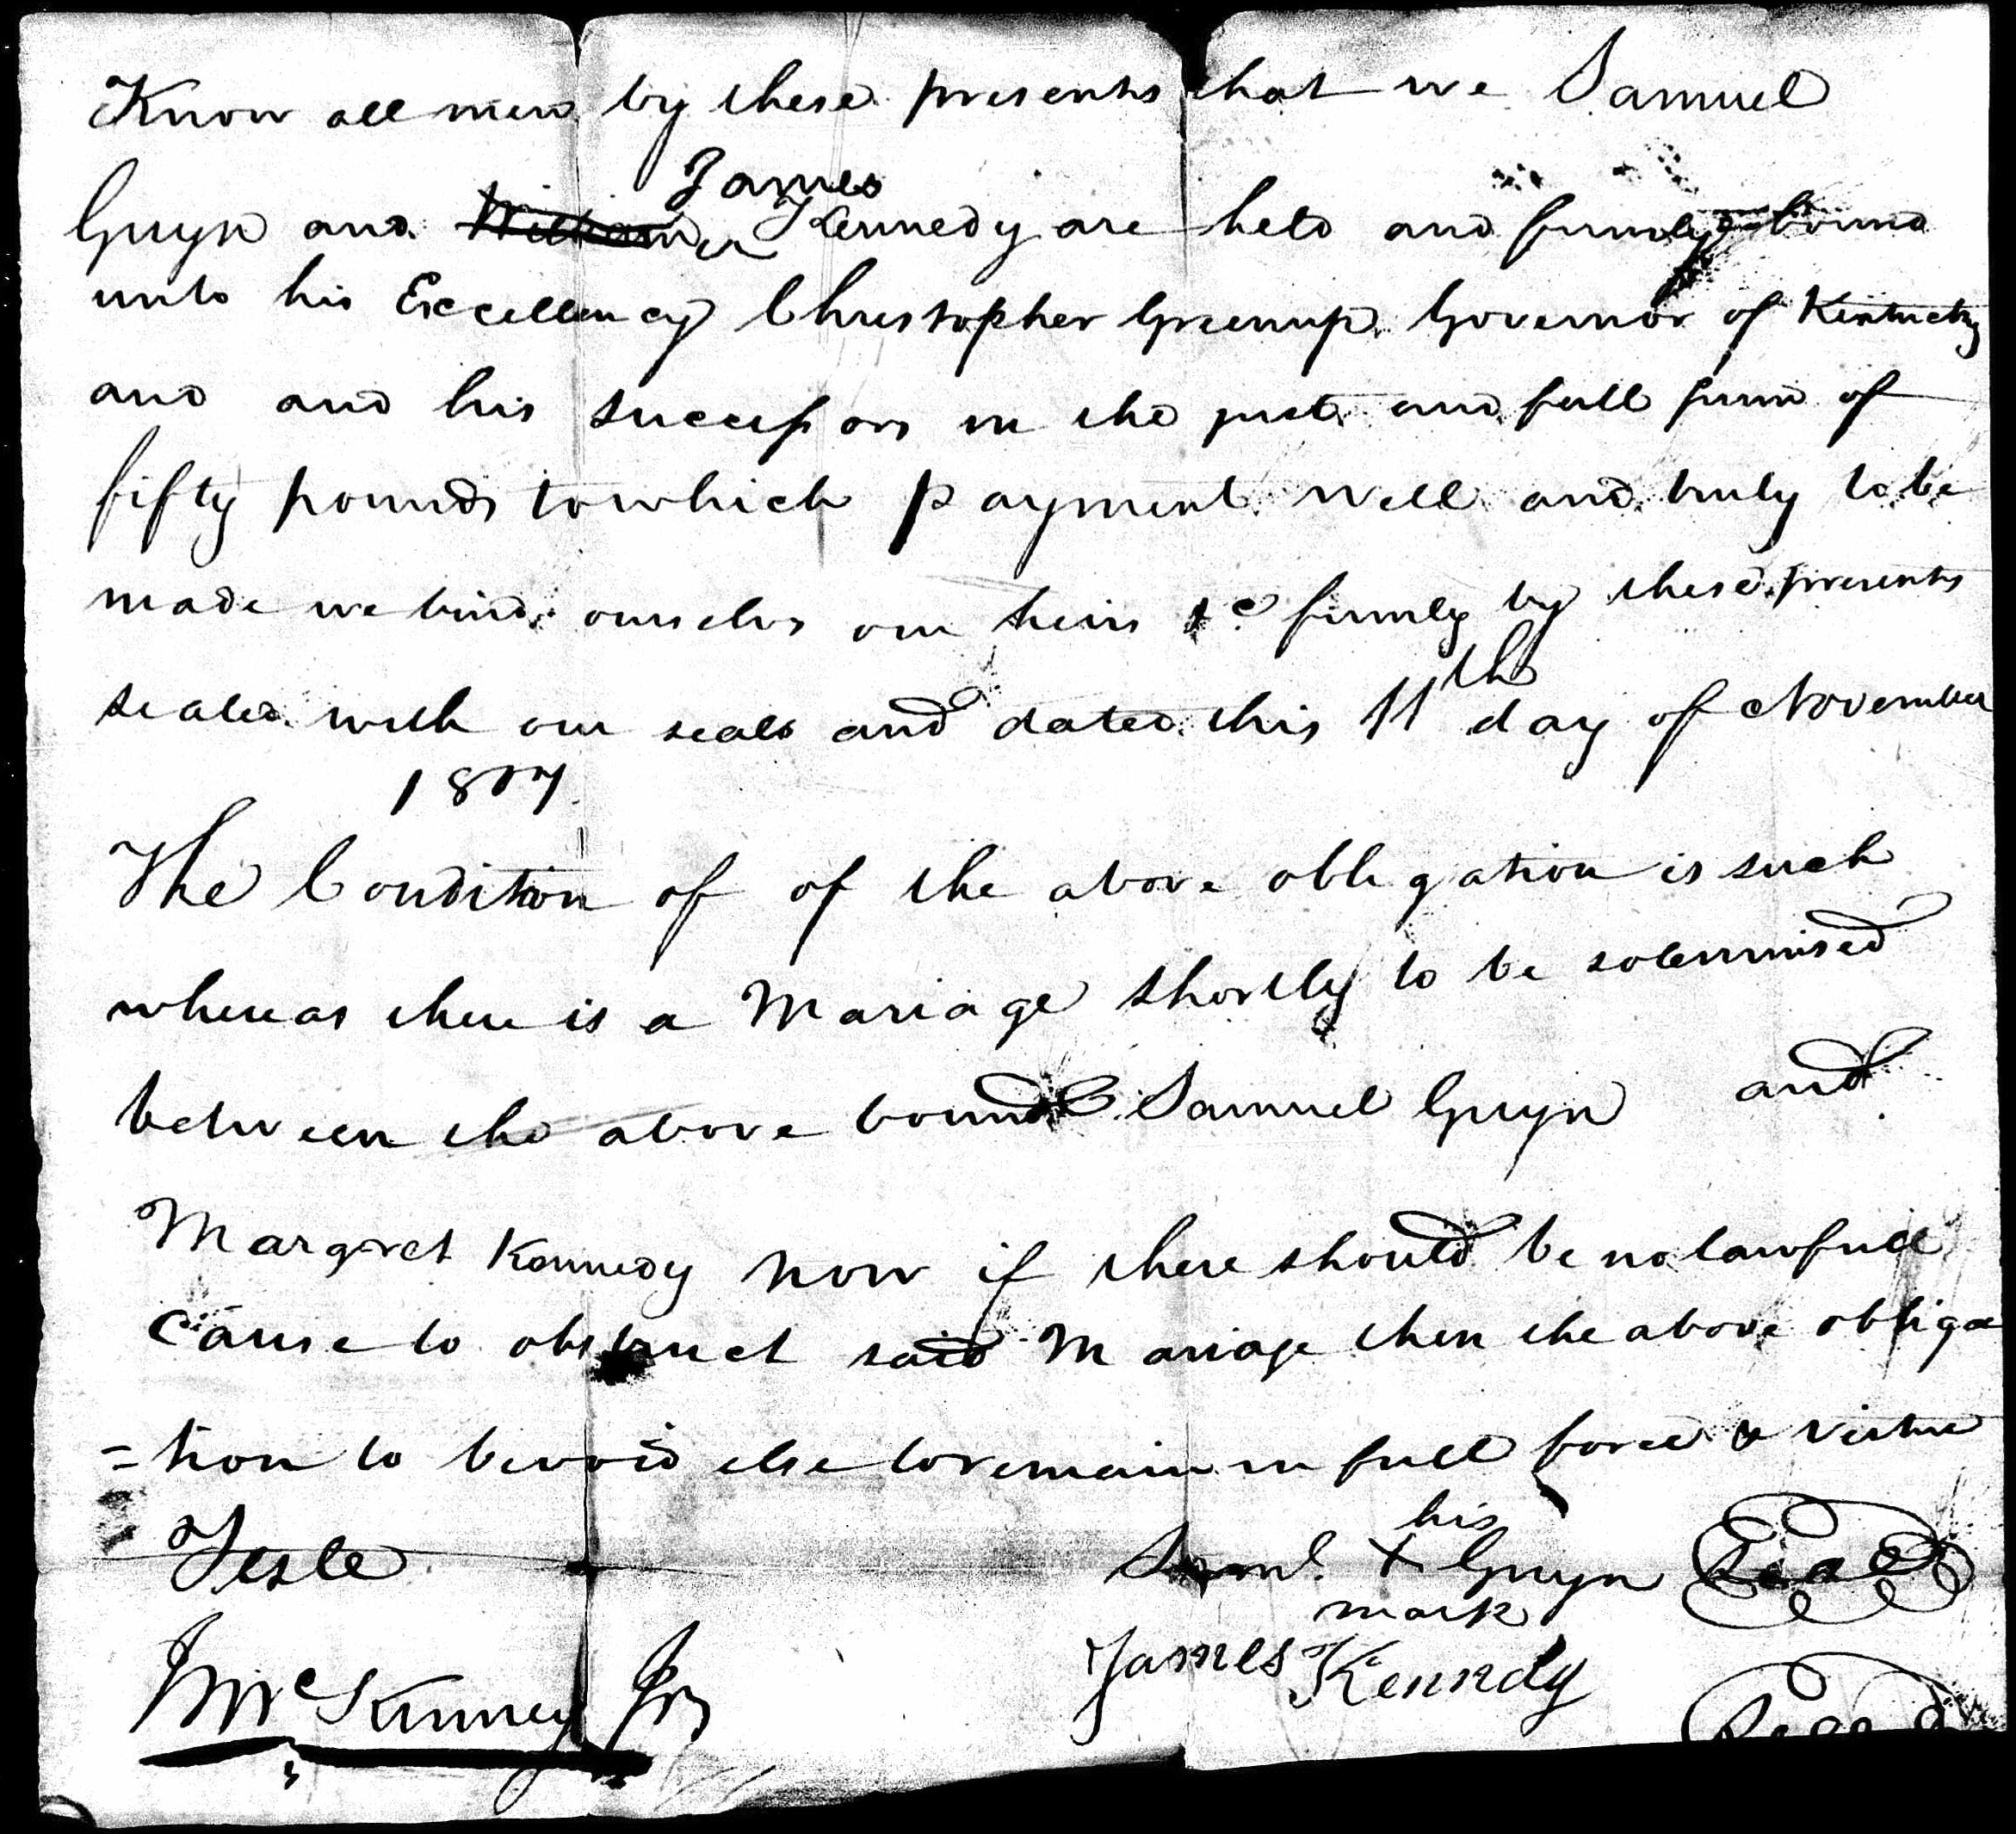 Know all men by these presents that we Samuel
James
Guyn and William Kennedy are held and firmly bound
unto his Excellency Christopher Greenup Governor of Kentucky
and and his successors in the just and full sum of
fifty pounds to which payment well and truly to be
made we bind ourselvs our heirs &c firmly by these presents
sealed with our seals and dated this 11th day of November
1807
The Condition of of the above obligation is such
whereas there is a Mariage shortly to be solemnised
between the above bound Samuel Guyn and
Margret Kennedy now if there should be no lawfull
cause to obstruct said Mariage then the above obliga
=tion to be void else to remain in full force & virtue
his
Teste Saml. + Guyn Seal
mark
James Kenndy
J McKinney Jr Seal